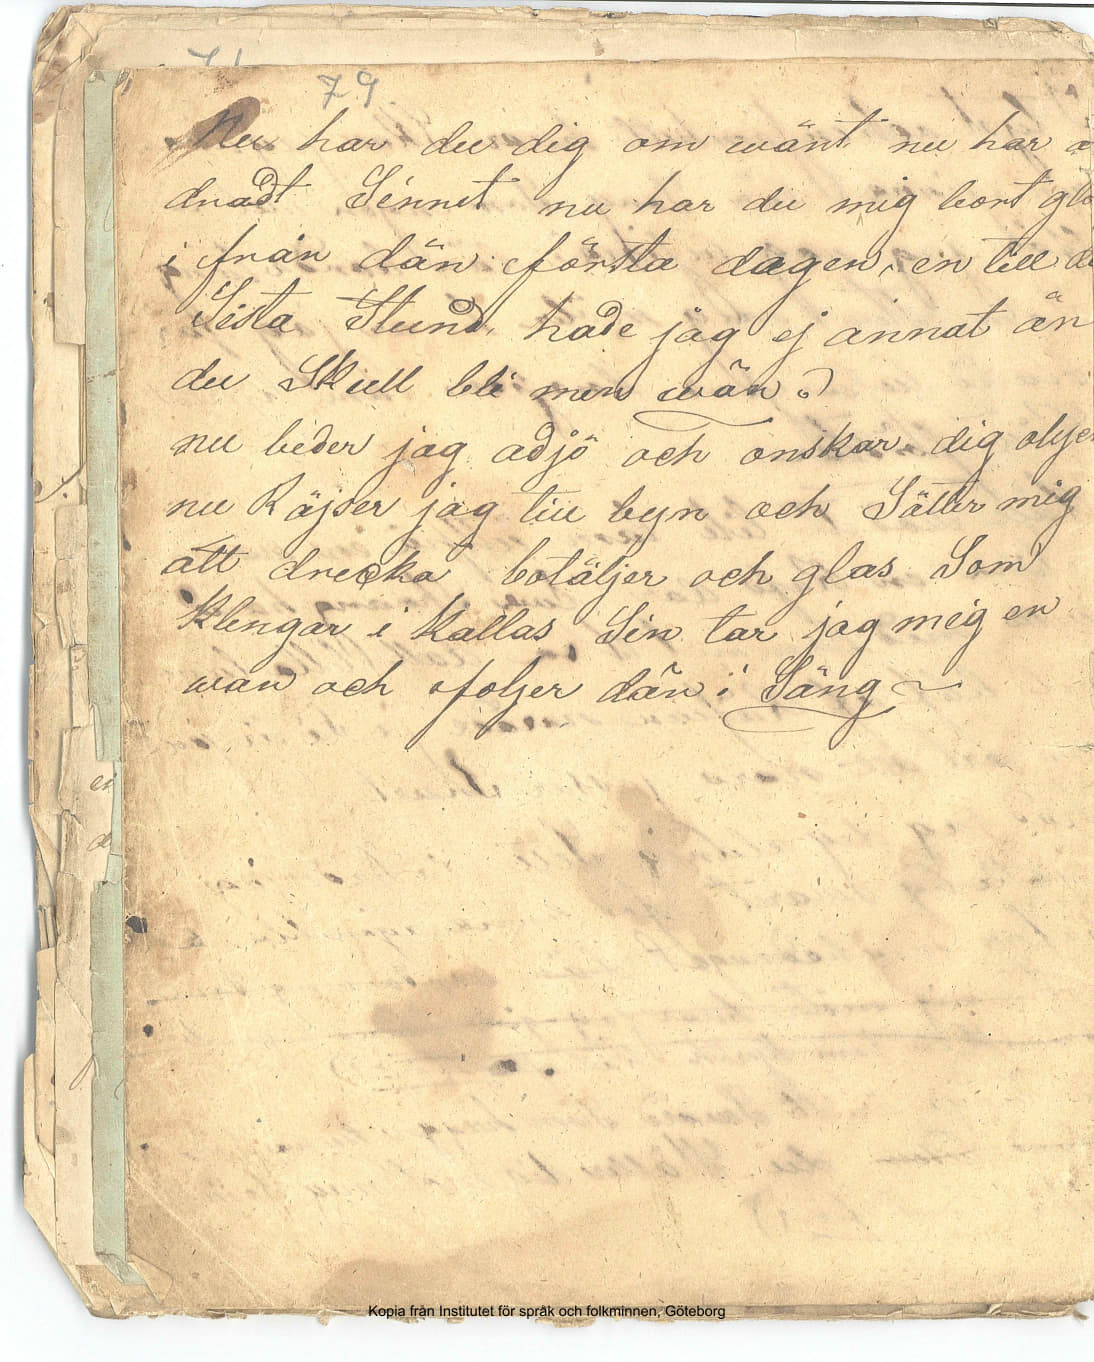 79
Nu har du dig om wänt nu har
dradt Sinnet nu har du mig bort
i från dän första dagen, en till
Sista Stund, hade jag ej annat än
du Skull bli men wän.
nu beder jag adjö och onskar dig
nu Räjser jag till byn och Sätter mig
att drecka botäljer och glas Som
Klengar i Kallas Sin tar jag mig en
wän och foljer dän i Säng
Kopia från Institutet för språk och folkminnen, Göteborg